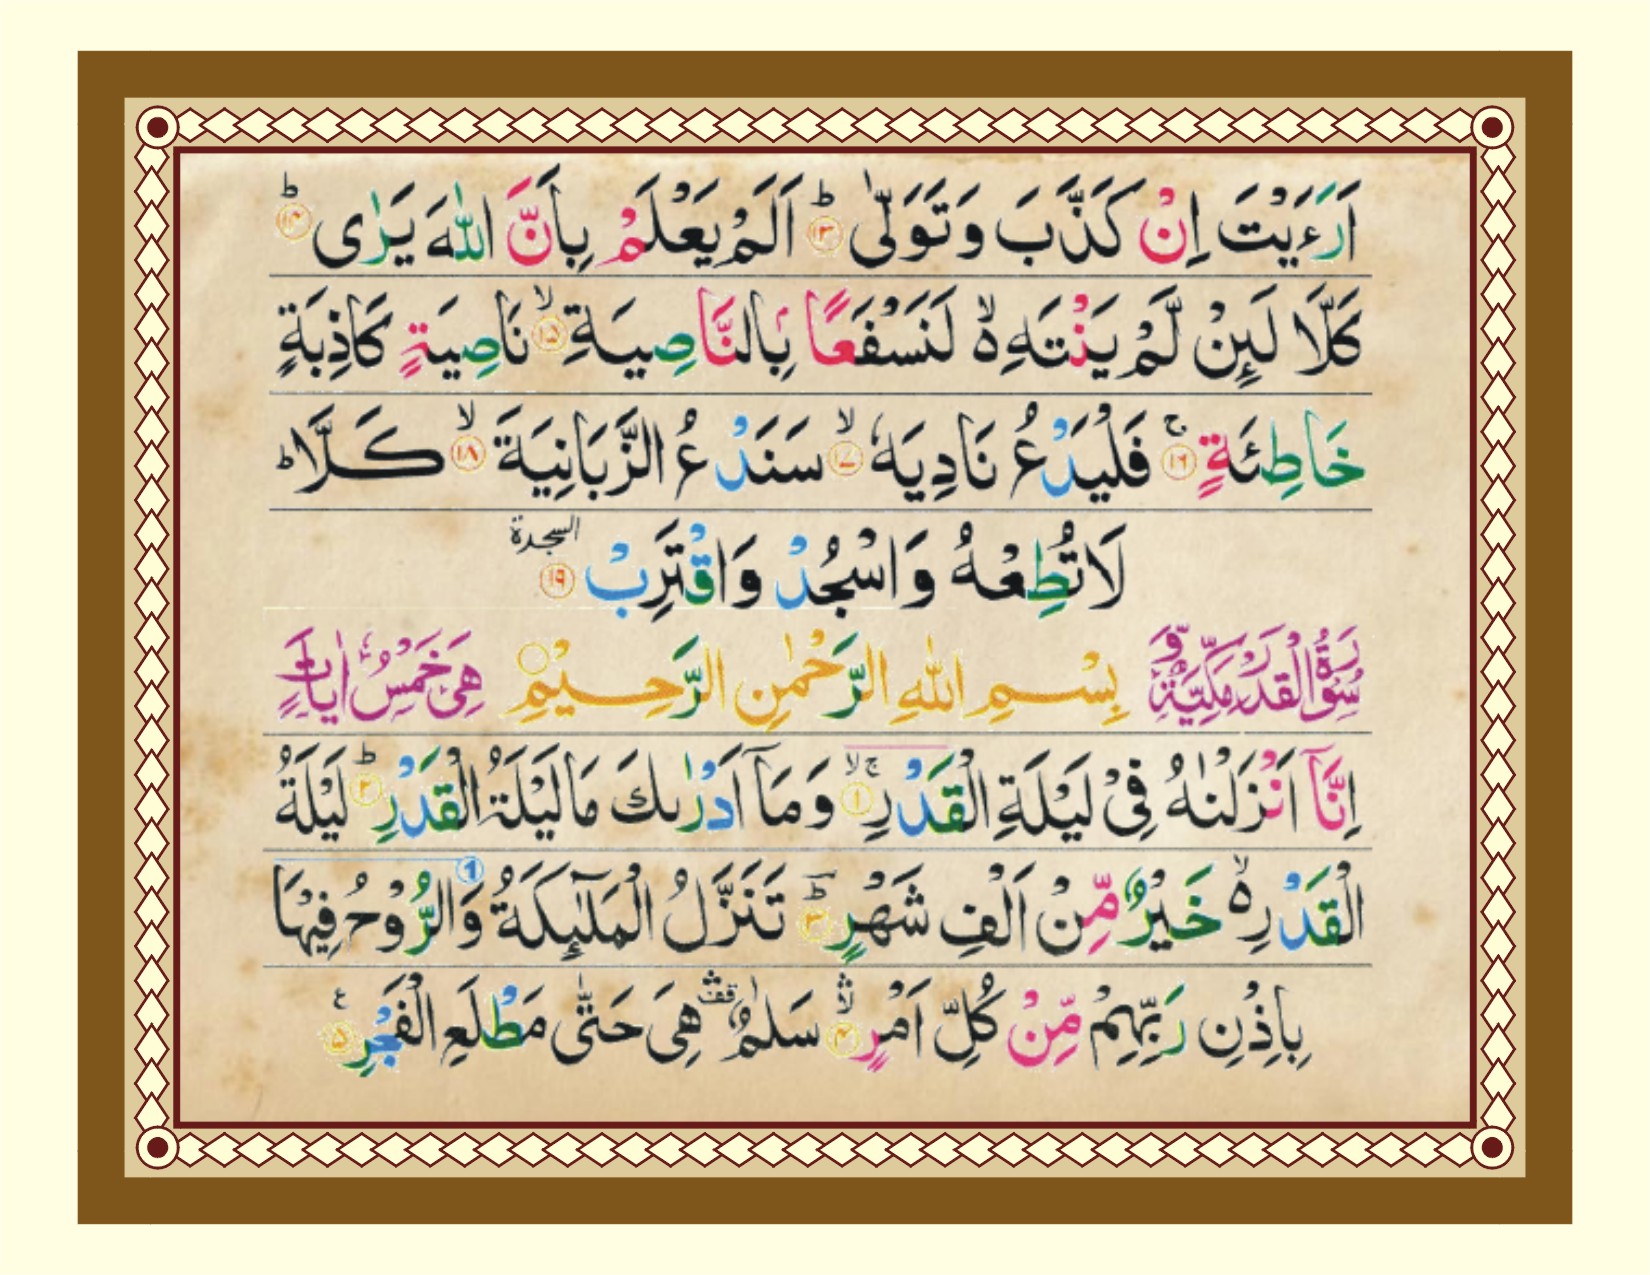 اَرَءَيْتَ اِنْ كَذَّبَ وَتَوَلّٰىؕ ۝۱۳ اَلَمْ يَعْلَمْ بِاَنَّ اللّٰهَ يَرٰىؕ ۝۱۴
كَلَّا لَىِٕنْ لَّمْ يَنْتَهِ ۙ۬ لَنَسْفَعًۢا بِالنَّاصِيَةِۙ ۝۱۵ نَاصِيَةٍ كَاذِبَةٍ
خَاطِئَةٍۚ ۝۱۶ فَلْيَدْعُ نَادِيَهٗۙ ۝۱۷ سَنَدْعُ الزَّبَانِيَةَۙ ۝۱۸ كَلَّاؕ
لَا تُطِعْهُ وَاسْجُدْ وَاقْتَرِبْ السجدة ۝۱۹
سُوْرَةُ الْقَدْرِ مَكِّيَّةٌ وَّ بِسْمِ اللّٰهِ الرَّحْمٰنِ الرَّحِيْمِ هِىَ خَمْسُ اٰيَاتٍ
اِنَّآ اَنْزَلْنٰهُ فِىْ لَيْلَةِ الْقَدْرِ ۚۙ ۝۱ وَمَآ اَدْرٰىكَ مَا لَيْلَةُ الْقَدْرِؕ ۝۲ لَيْلَةُ
الْقَدْرِ ۙ۬ خَيْرٌ مِّنْ اَلْفِ شَهْرٍؕ ۝۳ تَنَزَّلُ الْمَلٰٓىِٕكَةُ وَالرُّوْحُ فِيْهَا
بِاِذْنِ رَبِّهِمْ مِّنْ كُلِّ اَمْرٍۙۛ ۝۴ سَلٰمٌ ۛقف هِىَ حَتّٰى مَطْلَعِ الْفَجْرِ ۝۵ ع